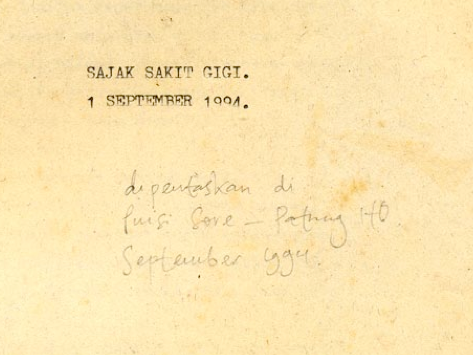 SAJAK SAKIT GIGI.
1 SEPTEMBER 1994.
dipentaskan di
Puisi Sore – Patung Ho
September 1994.